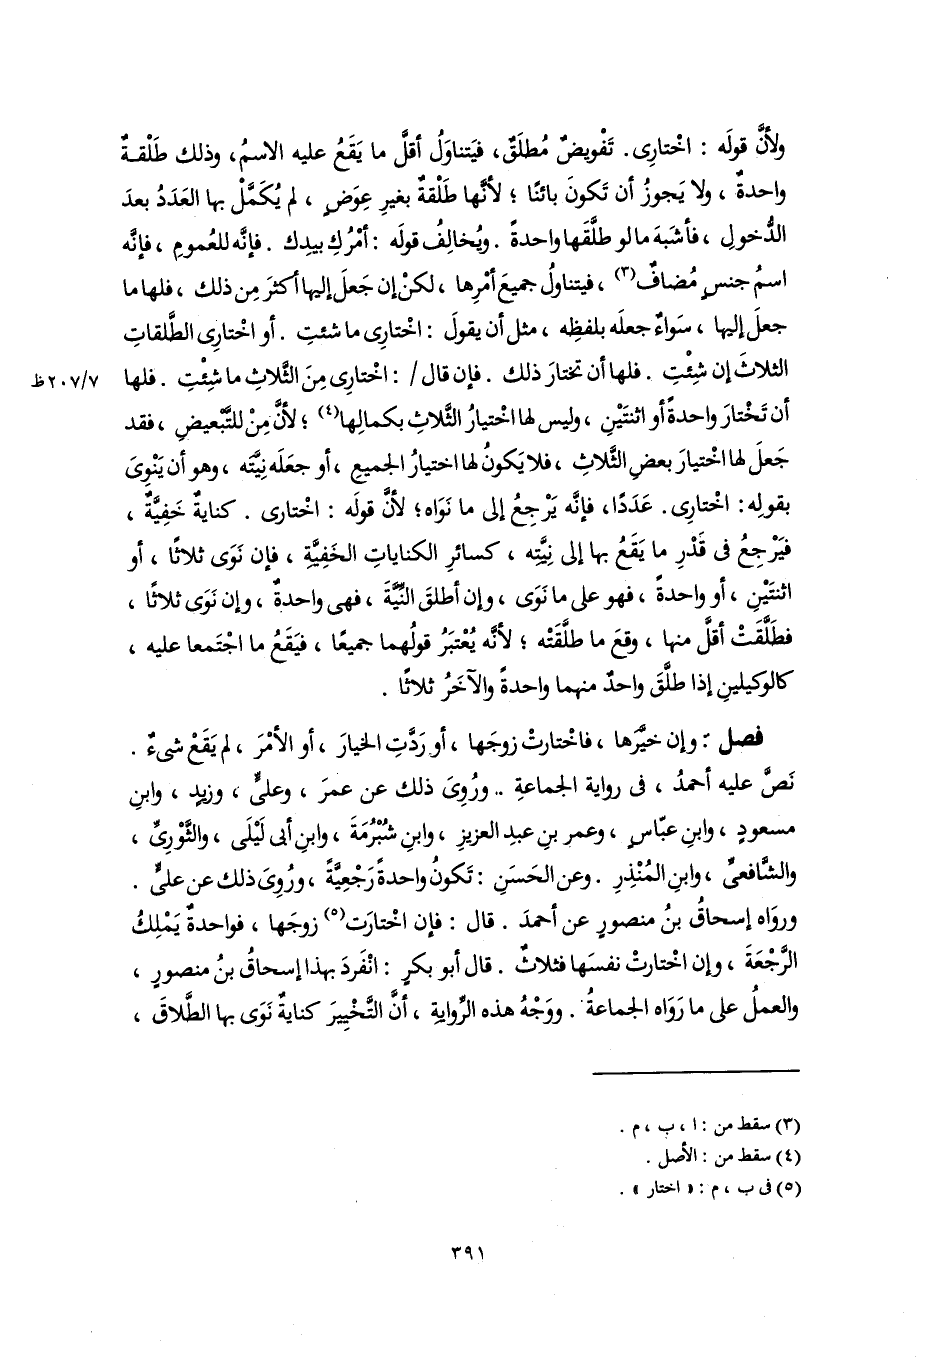 ولأنَّ قولَه : اخْتارِى. تَفْويضٌ مُطلَقٌ، فيَتناوَلُ أقلَّ ما يَقَعُ عليه الاسمُ، وذلك طَلْقةٌ
واحدةٌ ، ولا يَجوزُ أن تَكونَ بائنًا ؛ لأنَّها طَلْقةٌ بغيرِ عِوَضٍ ، لم يُكَمَّلْ بها العَدَدُ بعدَ
الدُّخولِ ، فأشبَهَ ما لو طلَّقَها واحدةً . ويُخالِفُ قولَه : أمْرُكِ بيدِك . فإنَّه للعُمومِ ، فإنَّه
اسمُ جنسٍ مُضافٌ(٣) ، فيتناولُ جميعَ أمْرِها ، لكنْ إن جَعلَ إليها أكثرَ مِن ذلك ، فلها ما
جعلَ إليها ، سَواءٌ جعلَه بلفظِه ، مثل أن يقولَ : اختارِى ما شئتِ . أو اختارِى الطَّلقاتِ
الثلاثَ إن شِئْتِ . فلها أن تختارَ ذلك . فإن قال / : اختارِى مِنَ الثَّلاثِ ما شِئْتِ . فلها ٢٠٧/٧ظ
أن تَخْتارَ واحدةً أو اثنتَيْنِ ، وليس لها اختيارُ الثَّلاثِ بكمالِها(٤) ؛ لأنَّ مِنْ للتَّبْعيضِ ، فقد
جَعلَ لها اختيارَ بعضِ الثَّلاثِ ، فلا يَكونُ لها اختيارُ الجميعِ ، أو جعَلَه نِيَّتَه ، وهو أن يَنْوِىَ
بقولِه: اخْتارِى. عَدَدًا، فإنَّه يَرْجِعُ إلى ما نَوَاه؛ لأنَّ قولَه : اخْتارى . كنايةٌ خَفِيَّةٌ ،
فيَرْجِعُ فى قَدْرِ ما يَقَعُ بها إلى نِيَّتِه ، كسائرِ الكناياتِ الخَفِيَّةِ ، فإن نَوَى ثلاثًا ، أو
اثنتَيْنِ ، أو واحدةً ، فهو على ما نَوَى ، وإن أطلقَ النِّيَّةَ ، فهى واحدةٌ ، وإن نَوَى ثلاثًا ،
فطَلَّقَتْ أقلَّ منها ، وقعَ ما طلَّقَتْه ؛ لأنَّه يُعْتبَرُ قولُهما جميعًا ، فيَقَعُ ما اجْتَمعا عليه ،
كالوكيلينِ إذا طلَّقَ واحدٌ منهما واحدةً والآخَرُ ثلاثًا .
فصل : وإن خيَّرَها ، فاختارتْ زوجَها ، أو رَدَّتِ الخيارَ ، أو الأمْرَ ، لم يَقَعْ شىءٌ .
نَصَّ عليه أحمدُ ، فى رواية الجماعةِ .. ورُوِىَ ذلك عن عمرَ ، وعلىٍّ ، وزيدٍ ، وابنِ
مسعودٍ ، وابنِ عبّاسٍ ، وعمرِ بنِ عبدِ العزيزِ ، وابنِ شُبْرُمَةَ ، وابنِ أبى لَيْلَى ، والثَّوْرِىِّ ،
والشَّافعىِّ ، وابنِ المُنْذِرِ . وعن الحَسَنِ : تَكونُ واحدةً رَجْعِيَّةً ، ورُوِىَ ذلك عن علىٍّ .
وروَاه إسحاقُ بنُ منصورٍ عن أحمدَ . قال : فإن اختارَت(٥) زوجَها ، فواحدةٌ يَمْلِكُ
الرَّجْعَةَ ، وإن اختارتْ نفسَها فثلاثٌ . قال أبو بكرٍ : انْفَردَ بهذا إسحاقُ بنُ منصورٍ ،
والعملُ على ما رَوَاه الجماعةُ . ووَجْهُ هذه الرِّوايةِ ، أنَّ التَّخْيِيرَ كنايةٌ نَوَى بها الطَّلاقَ ،
(٣) سقط من : ا ، ب ، م .
(٤) سقط من : الأصل .
(٥) فى ب ، م : « اختار » .
٣٩١